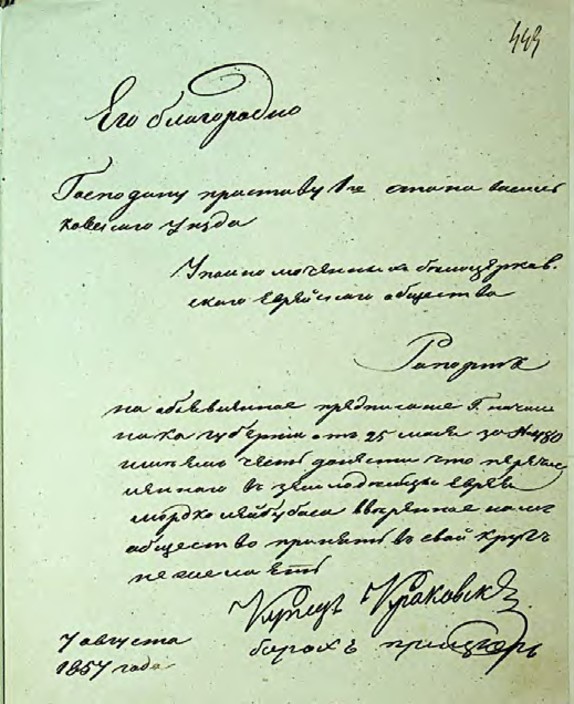 449
Его благородию
Господину приставу 1го стана василь
ковскаго уезда
Уполномоченных белоцерков-
скаго еврейскаго общества
Рапортъ
на объявленное предписание Г. началь
ника губернии от 25 мая за № 480
имеем честь донести что перечис
леннаго въ земледельцы еврея
мордко лейбу баса вверенное нам
общество принять въ свой кругъ
не желаетъ
Краковский
7 августа борохъ
1857 года